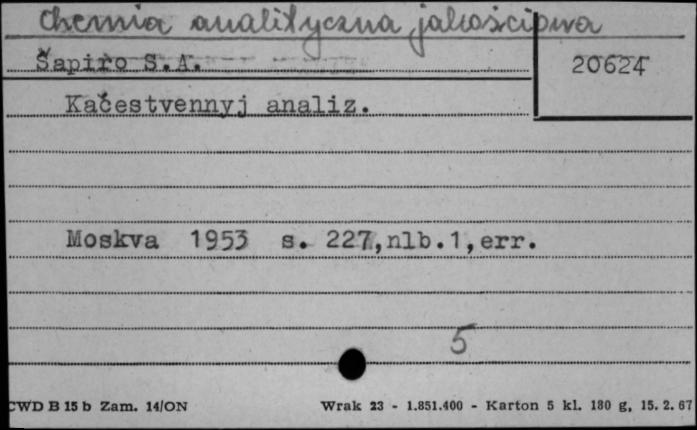 chemia analityczna jakościowa
Šapiro S.A.
20624
Kačestvennyj analiz.
Moskva 1953 s. 227,nlb.1,err.
5
CWD B 15 b Zam. 14/ON
Wrak 23 - 1.851.400 - Karton 5 kl. 180 g, 15. 2. 67